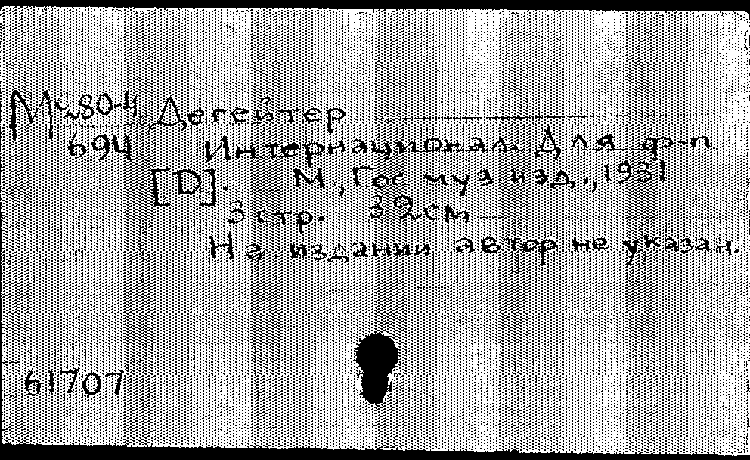 М 280-4 Дегейтер
694 Интернационал. Для ф-п
[D]. М., Гос муз изд., 1931
3 стр. 32 см
На издании автор не указан.
61707